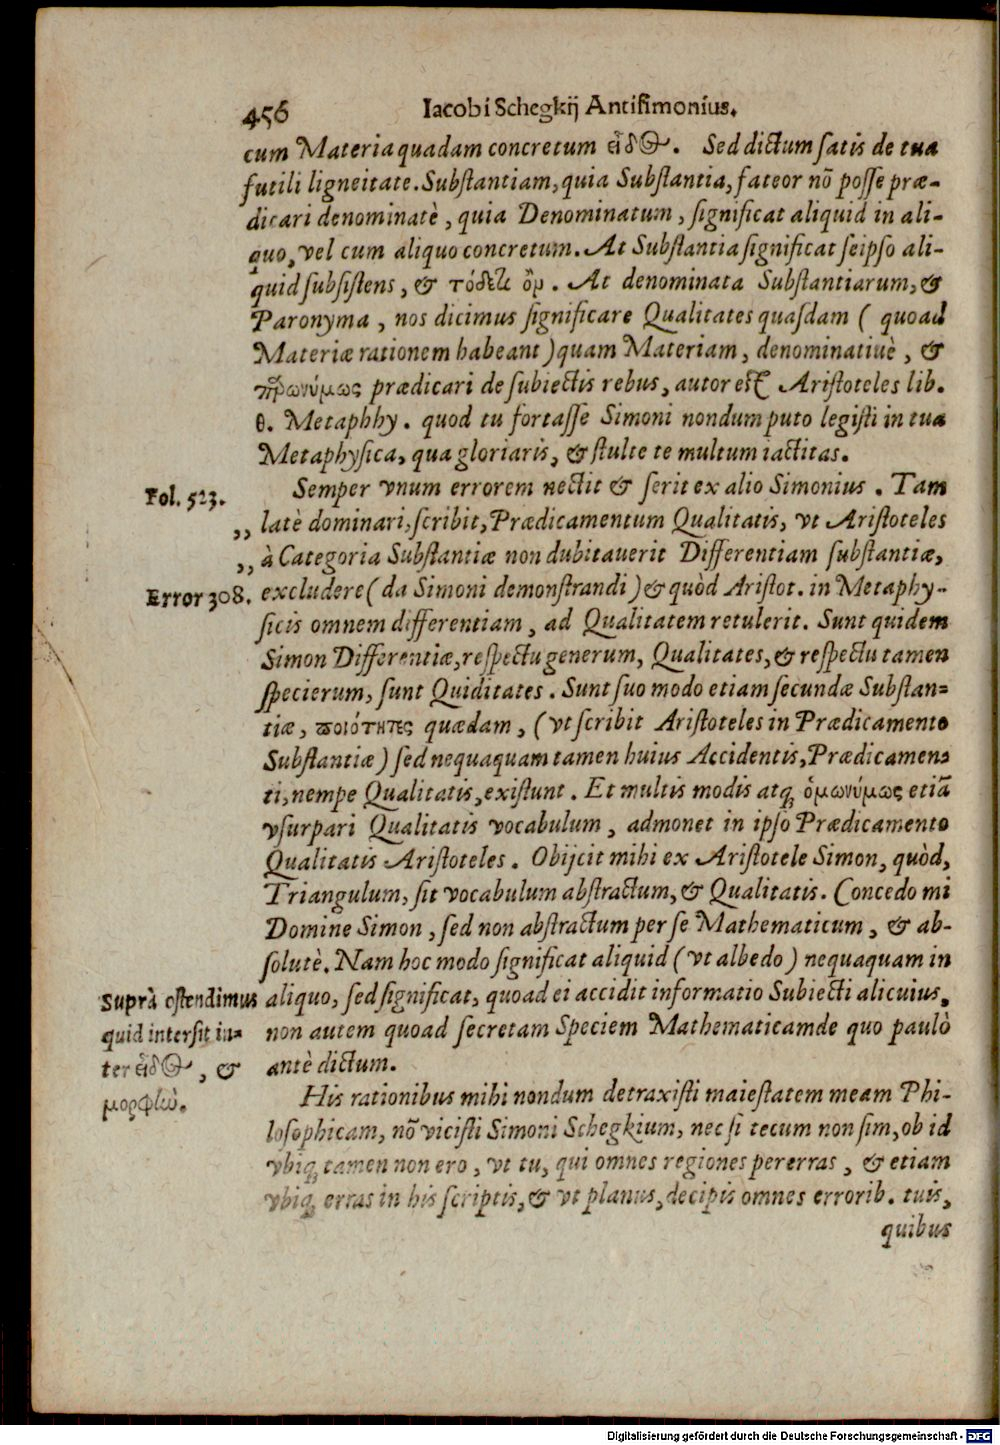 456 Iacobi Schegkij Antisimonius.
cum Materia quadam concretum εἶδος. Sed dictum satis de tua
futili ligneitate. Substantiam, quia Substantia, fateor nõ posse præ-
dicari denominatè, quia Denominatum, significat aliquid in ali-
quo, vel cum aliquo concretum. At Substantia significat seipso ali-
quid subsistens, & τόδε τι ὂν. At denominata Substantiarum, &
Paronyma, nos dicimus significare Qualitates quasdam ( quoad
Materiæ rationem habeant ) quam Materiam, denominatiuè, &
παρωνύμως prædicari de subiectis rebus, autor est Aristoteles lib.
θ. Metaphhy. quod tu fortasse Simoni nondum puto legisti in tua
Metaphysica, qua gloriaris, & stulte te multum iactitas.
Fol. 523.
Semper vnum errorem nectit & serit ex alio Simonius. Tam
,, latè dominari, scribit, Prædicamentum Qualitatis, vt Aristoteles
,, à Categoria Substantiæ non dubitauerit Differentiam substantiæ,
Error 308.
excludere ( da Simoni demonstrandi ) & quòd Aristot. in Metaphy-
sicis omnem differentiam, ad Qualitatem retulerit. Sunt quidem
Simon Differentiæ, respectu generum, Qualitates, & respectu tamen
specierum, sunt Quiditates. Sunt suo modo etiam secundæ Substan-
tiæ, ποιότητες quædam, ( vt scribit Aristoteles in Prædicamento
Substantiæ ) sed nequaquam tamen huius Accidentis, Prædicamen-
ti, nempe Qualitatis, existunt. Et multis modis atq; ὁμωνύμως etiã
vsurpari Qualitatis vocabulum, admonet in ipso Prædicamento
Qualitatis Aristoteles. Obijcit mihi ex Aristotele Simon, quòd,
Triangulum, sit vocabulum abstractum, & Qualitatis. Concedo mi
Domine Simon, sed non abstractum per se Mathematicum, & ab-
solutè. Nam hoc modo significat aliquid ( vt albedo ) nequaquam in
aliquo, sed significat, quoad ei accidit informatio Subiecti alicuius,
non autem quoad secretam Speciem Mathematicam de quo paulò
antè dictum.
Suprà ostendimus
quid intersit in-
ter εἶδος, &
μορφὼ.
His rationibus mihi nondum detraxisti maiestatem meam Phi-
losophicam, nõ vicisti Simoni Schegkium, nec si tecum non sim, ob id
vbiq; tamen non ero, vt tu, qui omnes regiones pererras, & etiam
vbiq; erras in his scriptis, & vt planus, decipis omnes errorib. tuis,
quibus
Digitalisierung gefördert durch die Deutsche Forschungsgemeinschaft - DFG